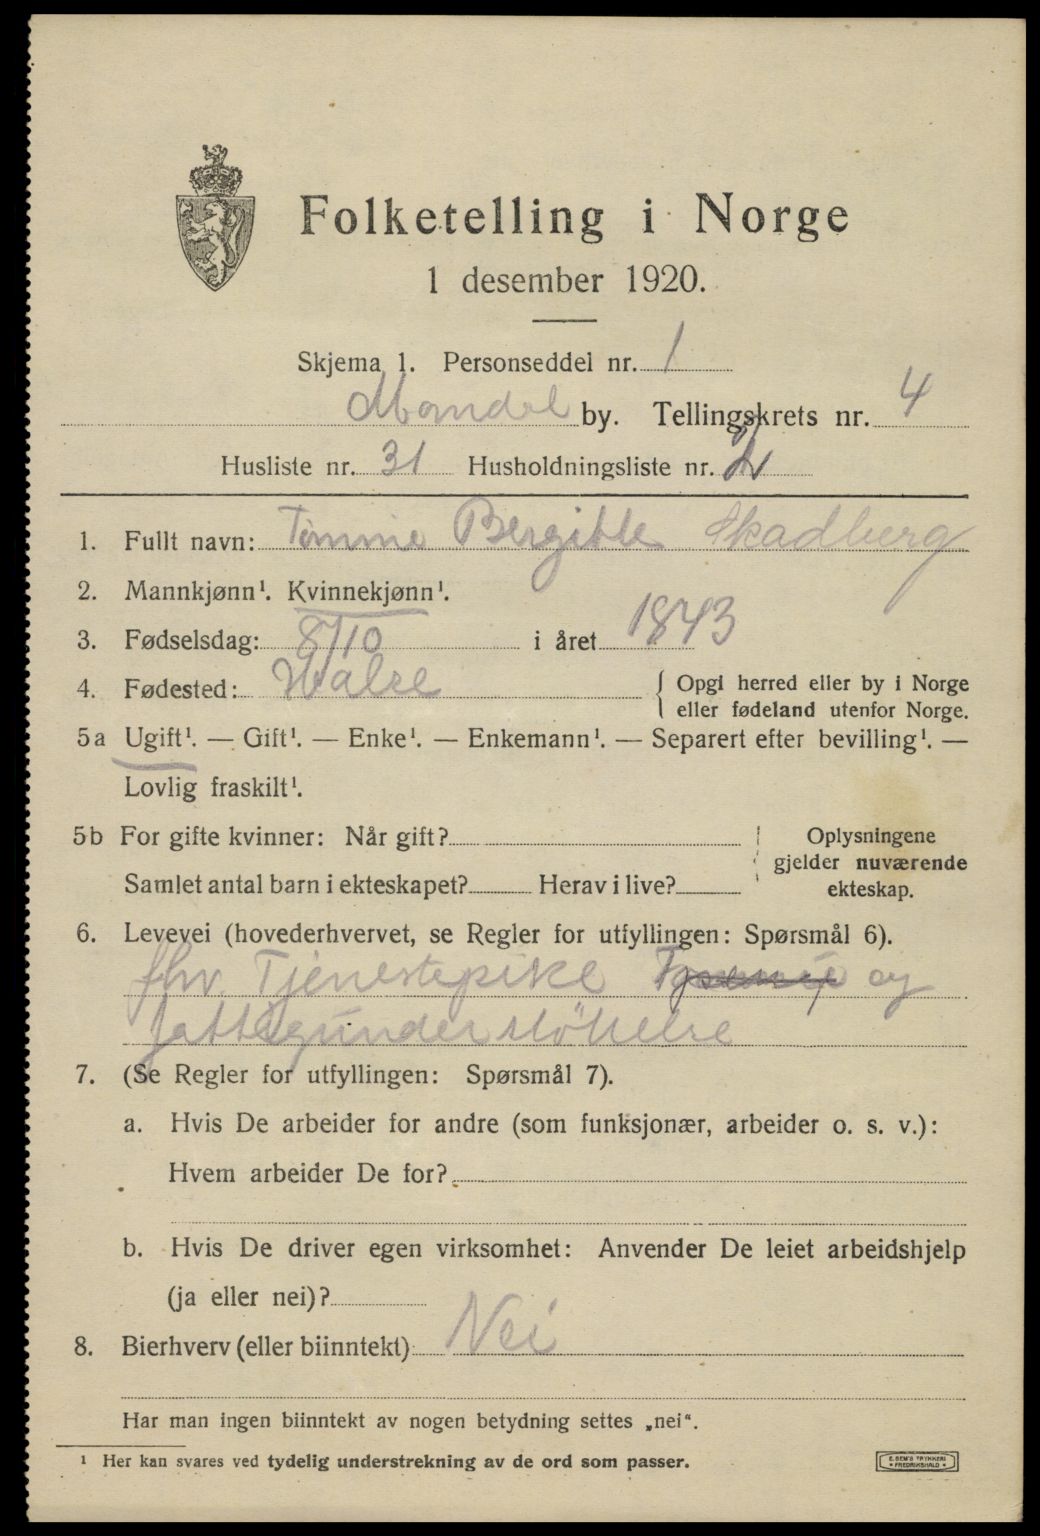 Folketelling i Norge
1 desember 1920.
Skjema 1. Personseddel nr. 1
Mandal by. Tellingskrets nr. 4
Husliste nr. 31 Husholdningsliste nr.
1. Fullt navn: Tomine Bergitte Skadberg
2. Mannkjønn¹. Kvinnekjønn¹.
3. Fødselsdag: 8/10 i året 1843
4. Fødested: Halse { Opgi herred eller by i Norge
eller fødeland utenfor Norge.
5a Ugift¹. — Gift¹. — Enke¹. — Enkemann¹. — Separert efter bevilling¹. —
Lovlig fraskilt¹.
5b For gifte kvinner: Når gift?
Samlet antal barn i ekteskapet? Herav i live?
Oplysningene
gjelder nuværende
ekteskap.
6. Levevei (hovederhvervet, se Regler for utfyllingen: Spørsmål 6).
fhv. Tjenestepike og
fattigunderstöttelse
7. (Se Regler for utfyllingen: Spørsmål 7).
a. Hvis De arbeider for andre (som funksjonær, arbeider o. s. v.):
Hvem arbeider De for?
b. Hvis De driver egen virksomhet: Anvender De leiet arbeidshjelp
(ja eller nei)?
8. Bierhverv (eller biinntekt) Nei
Har man ingen biinntekt av nogen betydning settes „nei“.
¹ Her kan svares ved tydelig understrekning av de ord som passer.
E. SEM'S TRYKKERI
FREDRIKSHALD